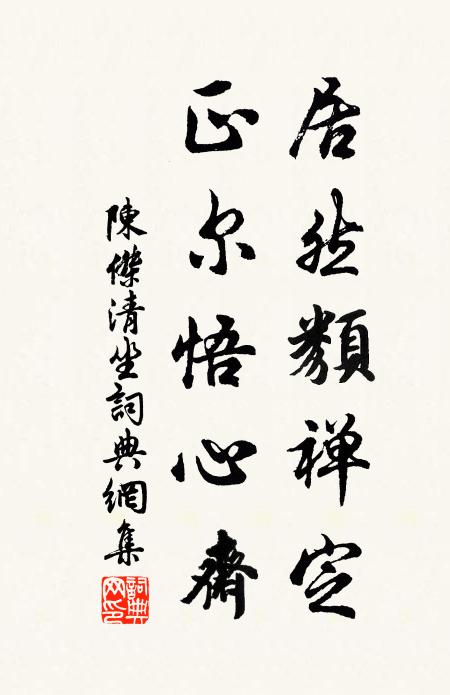 居然類禅定
正尔悟心齋
陳傑清坐詞典網集
詞典网印